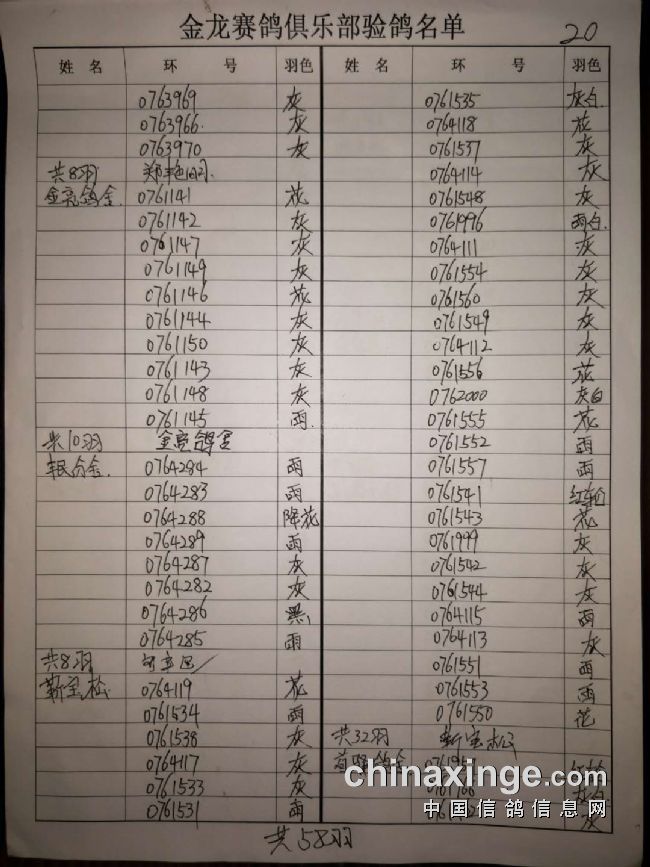 金龙赛鸽俱乐部验鸽名单
20
姓 名 环 号 羽色
0763969 灰
0763966 灰
0763970 灰
共8羽
金亮鸽舍 0761141 花
0761142 灰
0761147 灰
0761149 灰
0761146 花
0761144 灰
0761150 灰
0761143 灰
0761148 灰
0761145 雨
共10羽 金亮鸽舍
0764284 雨
0764283 雨
0764288 降花
0764289 雨
0764287 灰
0764282 灰
0764286 黑
0764285 雨
共8羽
靳宝松 0764119 花
0761534 雨
0761538 灰
0764117 灰
0761533 灰
0761531 雨
姓 名 环 号 羽色
0761535 灰白
0764118 花
0761537 灰
0764114 灰
0761548 灰
0761996 雨白
0764111 灰
0761554 灰
0761560 灰
0761549 灰
0764112 灰
0761556 花
0762000 灰白
0761555 花
0761552 雨
0761557 雨
0761541 红轮
0761543 花
0761999 灰
0761542 灰
0761544 灰
0764115 雨
0764113 灰
0761551 雨
0761553 雨
0761550 花
共32羽 靳宝松
灰
共58羽
chinaxinge.com
中国信鸽信息网